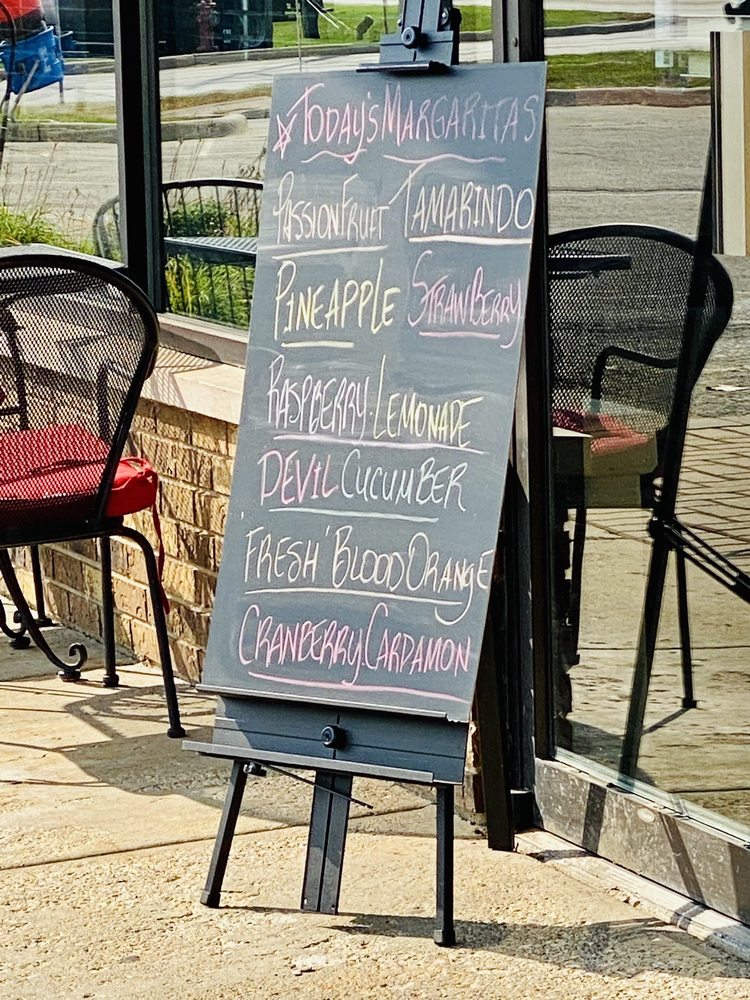 Today's Margaritas
PassionFruit Tamarindo
Pineapple Strawberry
Raspberry. Lemonade
Devil Cucumber
'Fresh' Blood Orange
Cranberry. Cardamon